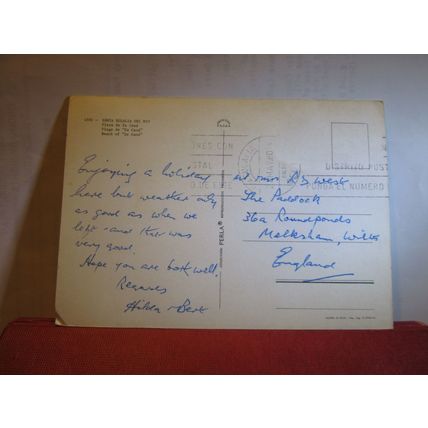 SANTA EULALIA DEL RIO
Playa de Es Caná
Plage de "Es Caná"
Beach of "Es Caná"
Enjoying a holiday
here but weather only
as good as when we
left and that was
very good.
Hope you are both well.
Regards
Hilda & Bert
PERLA
NES CON
STAL
DISTRITO POST
PONGA EL NUMERO
Mrs West
The Paddock
36a Roundponds
Melksham, Wilts
England